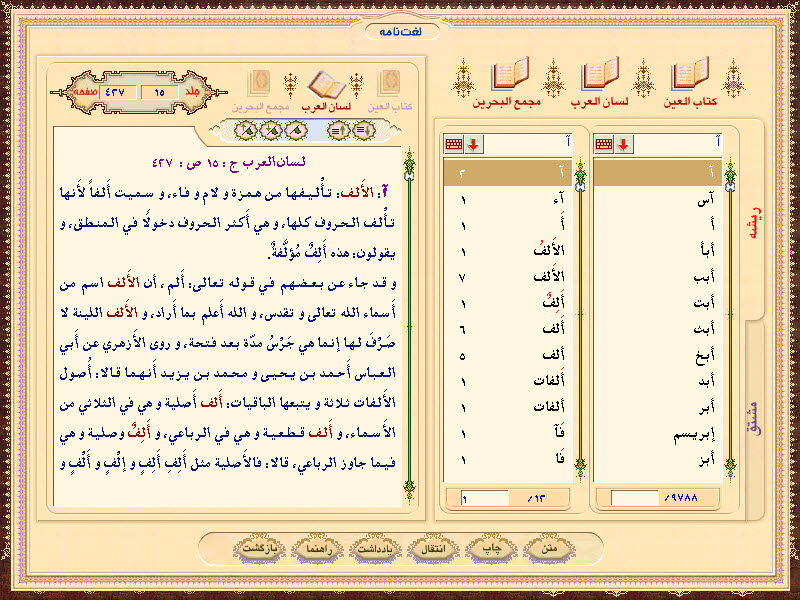 لغت‌نامه
کتاب العین
لسان العرب
مجمع البحرین
کتاب العین
لسان العرب
مجمع البحرین
جلد ١٥ ٤٢٧ صفحه
ریشه
مشتق
آ
آ
آس
أ
أبأ
أبب
أبت
أبث
أبخ
أبد
أبر
إبریسم
أبز
/٩٧٨٨
آ
آ ٢
آء ١
أَ ١
الأَلفُ ١
الأَلف ٧
أَلِفٌ ١
أَلف ٦
ألف ٥
أَلفات ١
ألفات ١
فَآ ١
فَا ١
/١٣ ١
لسان العرب ج : ١٥ ص : ٤٢٧
آ: الأَلف: تأْليفها من همزة و لام و فاء، و سميت أَلفاً لأنها
تأْلف الحروف كلها، و هي أَكثر الحروف دخولًا في المنطق، و
يقولون: هذه أَلِفٌ مُؤَلَّفةٌ.
و قد جاء عن بعضهم في قوله تعالى: أَلم ، أن الأَلف اسم من
أَسماء الله تعالى و تقدس، و الله أَعلم بما أَراد، و الأَلف اللينة لا
صَرْفَ لها إنما هي جَرْسُ مدّة بعد فتحة، و روى الأَزهري عن أَبي
العباس أَحمد بن يحيى و محمد بن يزيد أَنهما قالا: أُصول
الأَلفات ثلاثة و يتبعها الباقيات: أَلف أَصلية و هي في الثلاثي من
الأَسماء، و أَلف قطعية و هي في الرباعي، و أَلِفٌ وصلية و هي
فيما جاوز الرباعي، قالا: فالأَصلية مثل أَلِفٍ أَلِفٍ و إلْفٍ و أَلْفٍ و
متن
چاپ
انتقال
یادداشت
راهنما
بازگشت